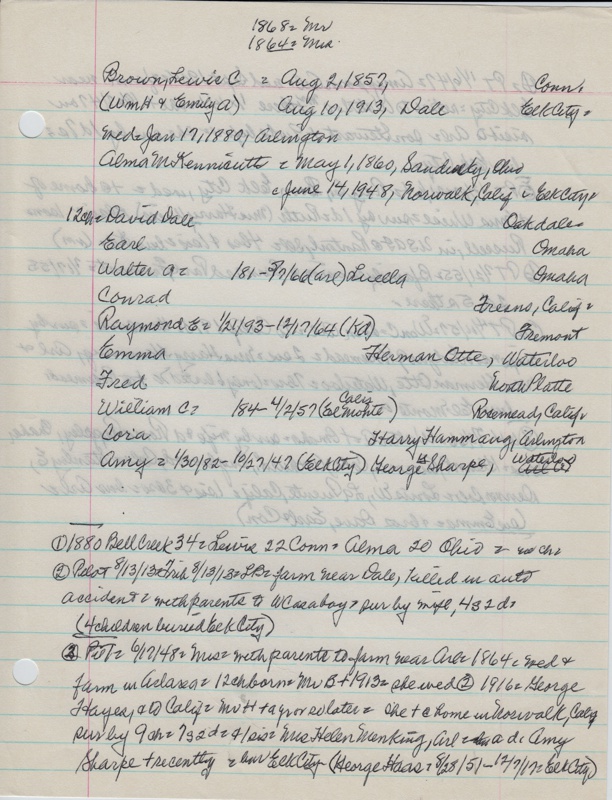 1868 = Mr
1864 = Mrs.
Brown, Lewis C = Aug 2, 1857, Conn.
(Wm H & Emily A) Aug 10, 1913, Dale Elk City =
wed = Jan 17, 1880, Arlington
Alma McKennicuth = May 1, 1860, Sandusky, Ohio
= June 14, 1948, Norwalk, Calif = Elk City =
12 ch = David Dale Oakdale =
Earl Omaha
Walter A = 181 - 9/7/66 (Arl) Luella Omaha
Conrad Fresno, Calif =
Raymond E = 1/21/93 - 12/17/64 Fremont
Emma Herman Otte, Waterloo
Fred North Platte
William C = 184 - 4/2/57 (El Monte Calif) Rosemead, Calif =
Coria Harry Hammang, Arlington
Amy = 1/30/82 - 10/27/47 (Elk City) George W Sharpe, Waterloo
① 1880 Bell Creek 34 = Lewis 22 Conn = Alma 20 Ohio = no ch
② Pilot 8/13/13 = Trib 8/13/13 = LB = farm near Dale, killed in auto
accident = with parents to W Casaboy = sur by wife, 4 s 2 d =
(4 children buried Elk City)
③ P&T = 6/17/48 = Mrs = with parents to farm near Arl = 1864 = wed &
farm in = 12 ch born = Mr B + 1913 = she wed ② 1916 = George
Hayes, & to Calif = Mr H + = she + c home in Norwalk, Calif
sur by 9 ch = 7 s 2 d = & 1 sis = Mrs Helen Menking, Arl = a d = Amy
Sharpe + recently = bur Elk City (George Haas = 8/28/51 - 12/7/17 = Elk City)